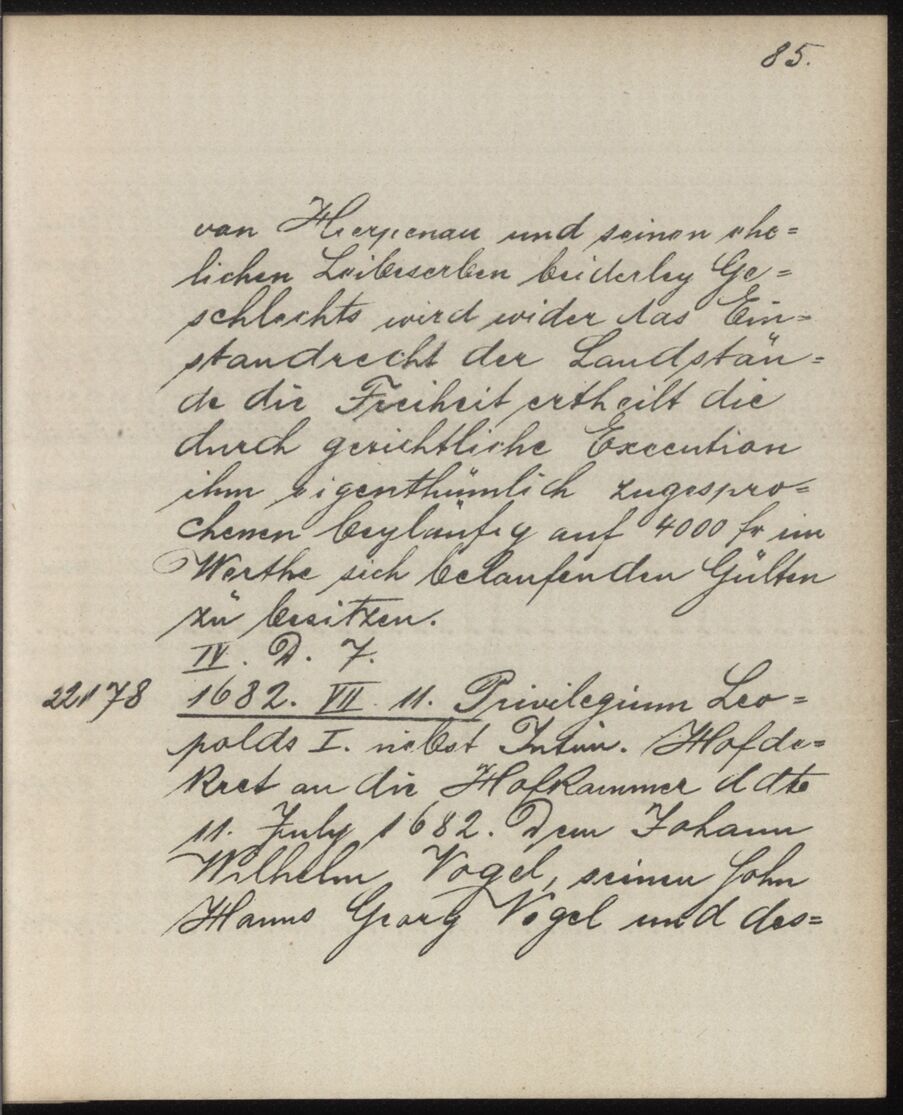 85.
von Hierpenau und seinen ehe=
lichen Leibeserben beiderley Ge=
schlechts wird wider das Ein=
standrecht der Landstän=
de die Freiheit ertheilt die
durch gerichtliche Execution
ihm eigenthümlich zugespro=
chenen beyläufig auf 4000 fr im
Werthe sich belaufenden Gülten
zu besitzen.
IV. D. 7.
22178 1682. VII. 11. Privilegium Leo=
polds I. nebst Intim. Hofde=
kret an die Hofkammer ddto
11. July 1682. Dem Johann
Wilhelm Vogel, seinem Sohn
Hanns Georg Vogel und des=